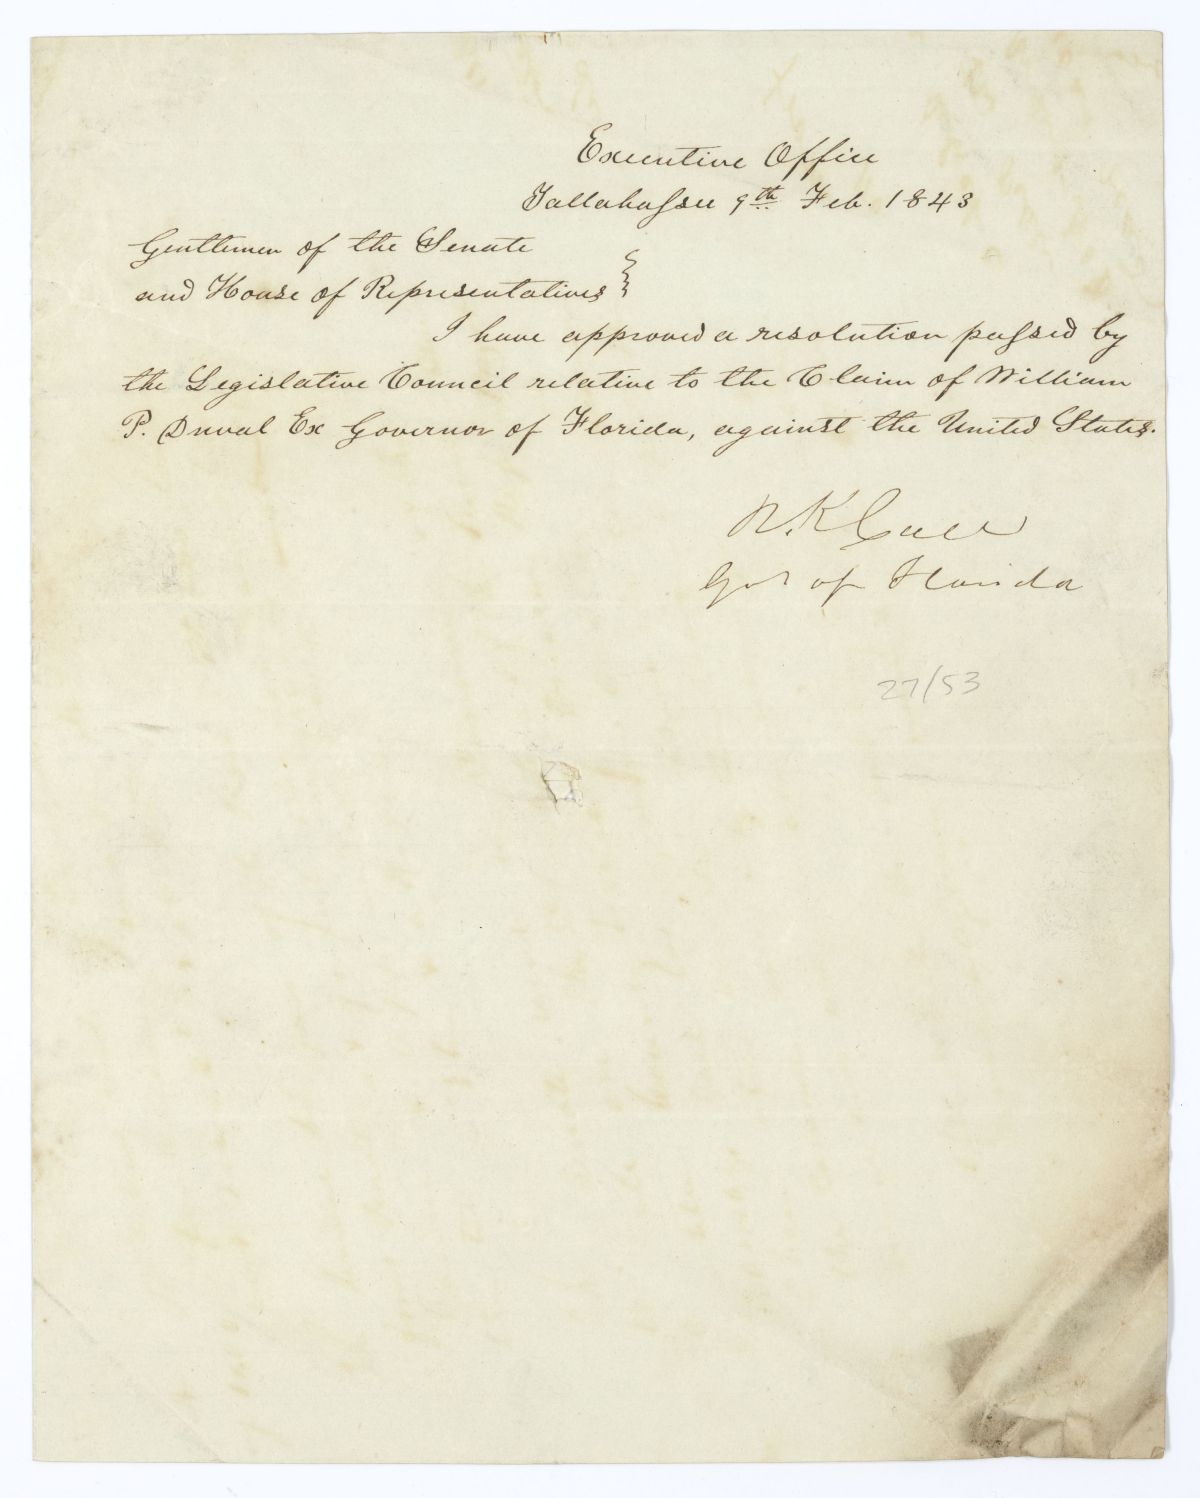 Executive Office
Tallahassee 9th Feb. 1843
Gentlemen of the Senate
and House of Representatives
I have approved a resolution passed by
the Legislative Council relative to the Claim of William
P. Duval Ex Governor of Florida, against the United States.
R. K. Call
Gov of Florida
27/53